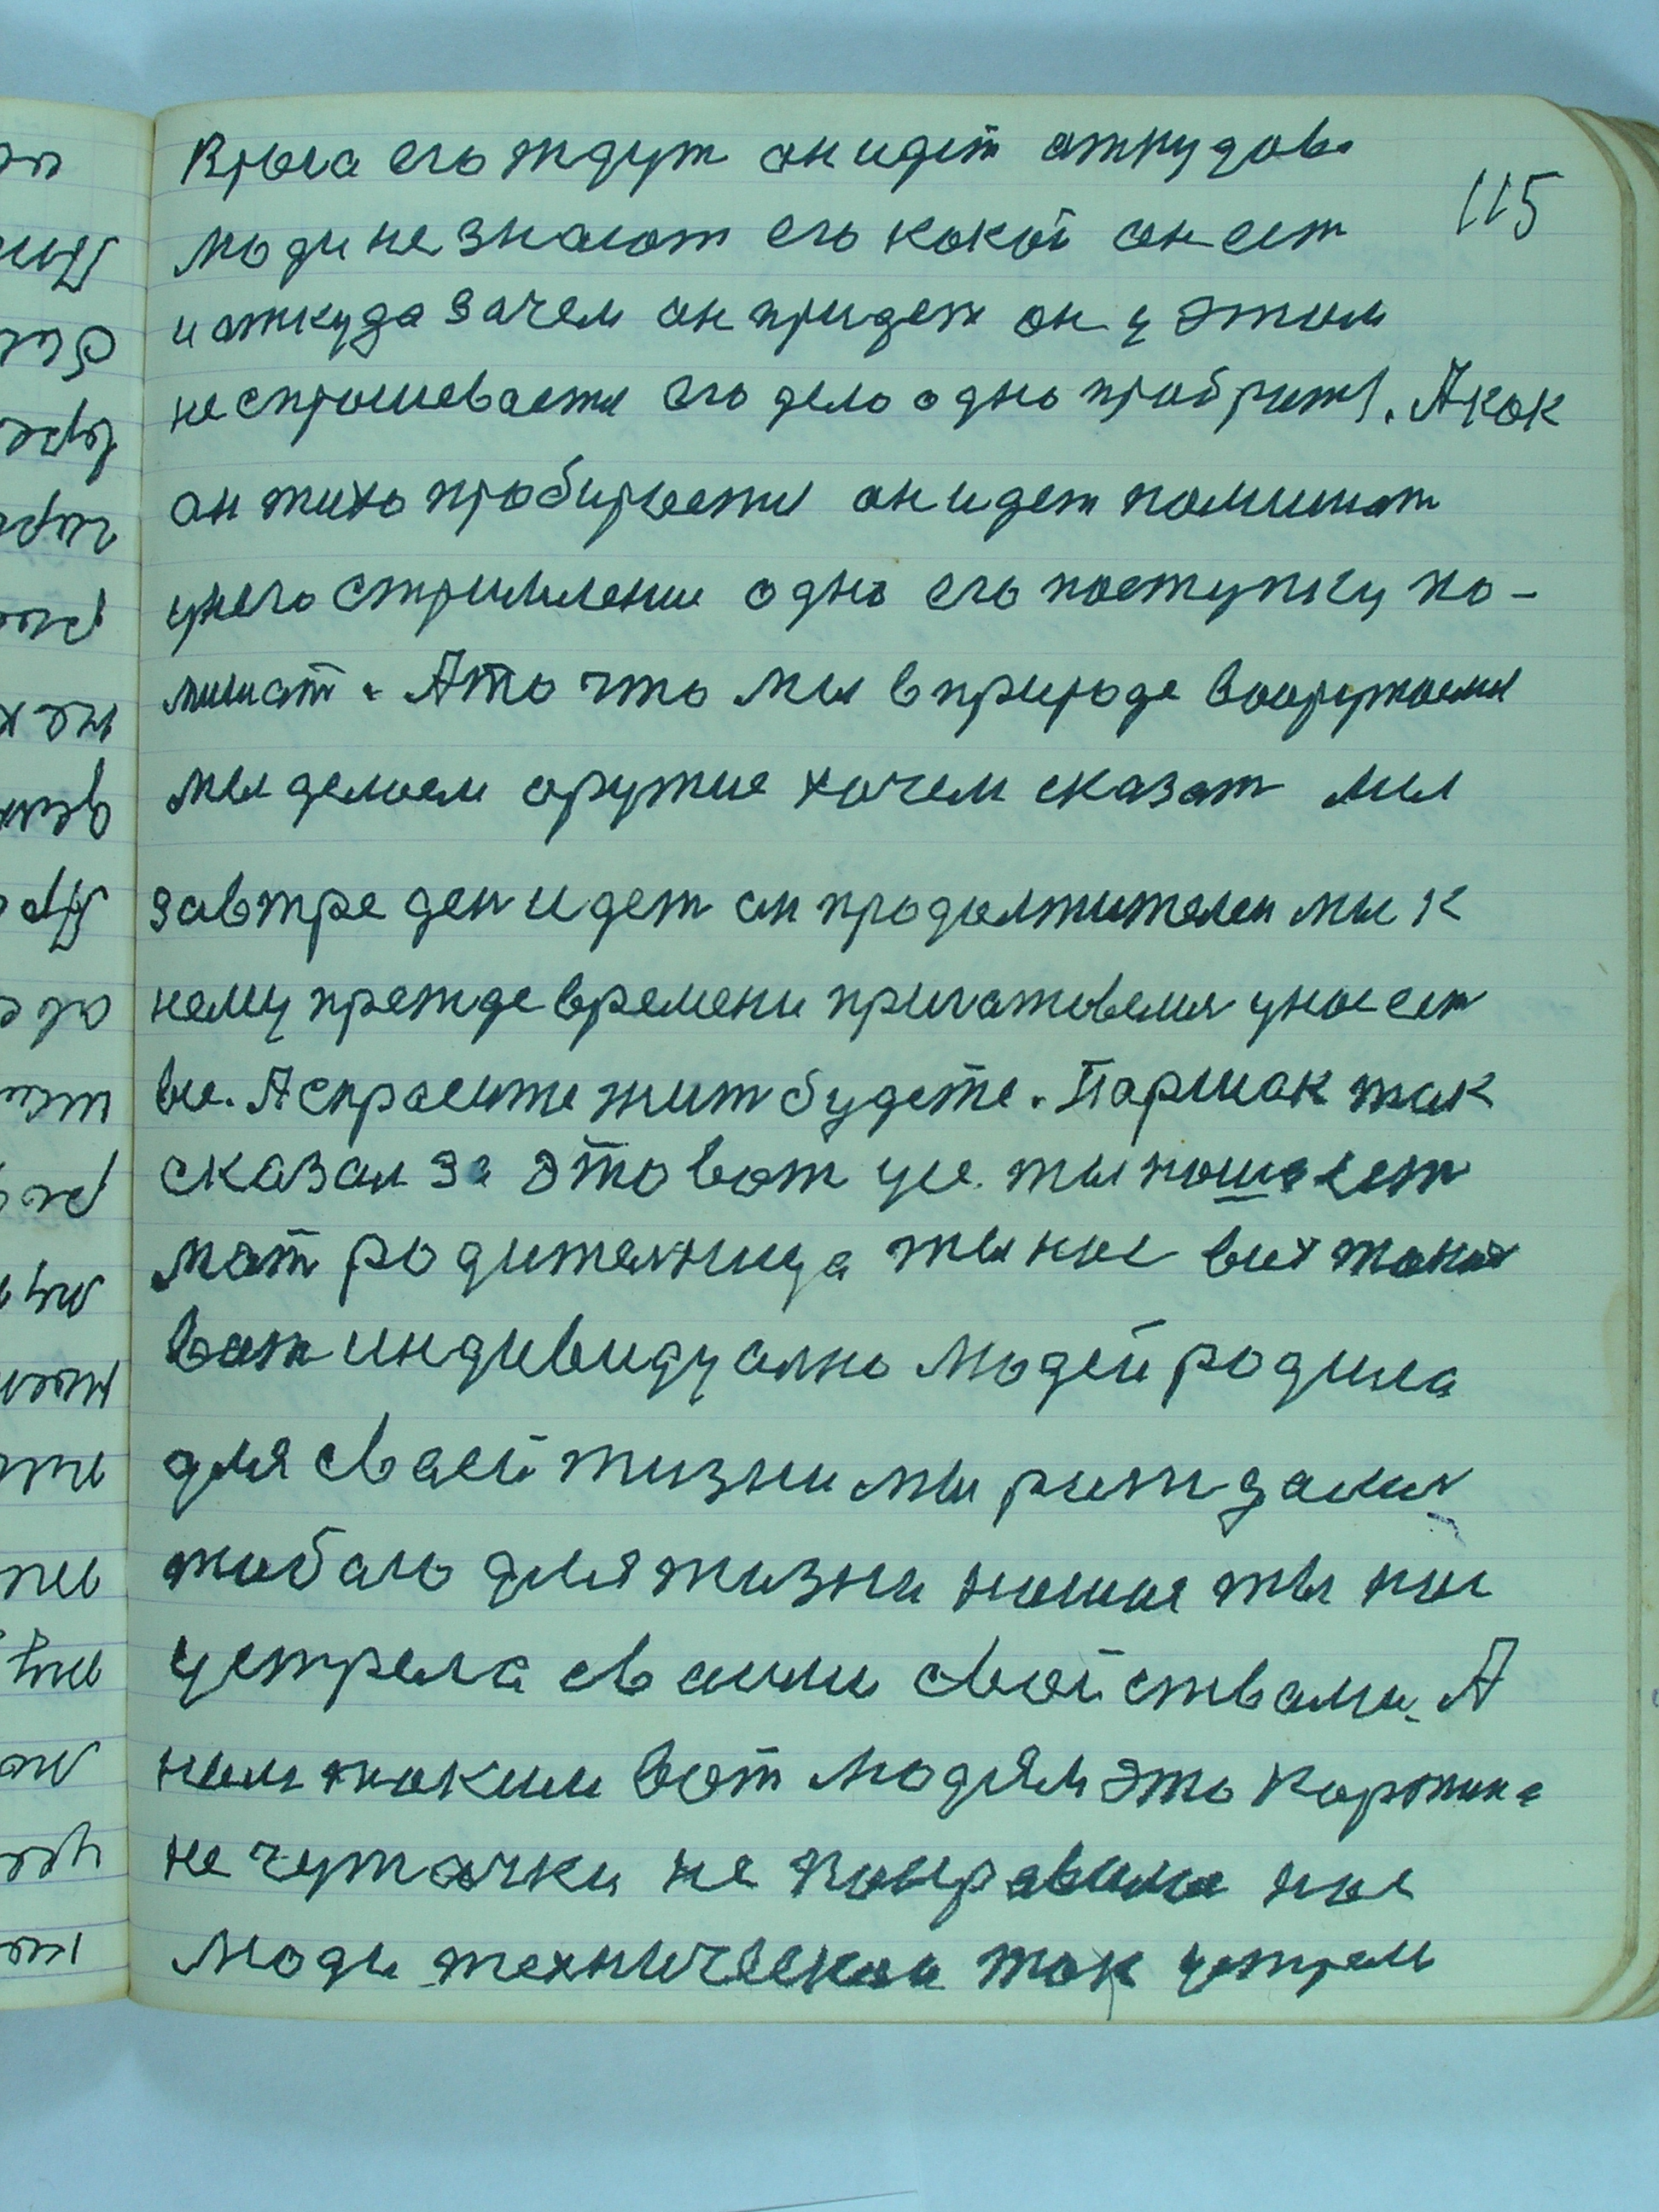 врага его ждут он идет откудова
115
люди не знают его какой он ест
и откуда зачем он придет он у этом
не спрошевается его дело одно пробрится. А как
он тихо пробирается он идет помишат
у него стримление одно его поступку по-
мишат. А то что мы в природе вооружаемся
мы делаем оружие хочем сказат мы
завтре ден идет он продолжителен мы к
нему прежде времени приготовемся у нас ест
все. А спросите жит будете. Паршак так
сказал за это вот усе. ты наша ест
мат родителница ты нас всих таких
вот индивидуално людей родила
для своей жизни мы рит дались
тибою для жизни нашия ты нас
устрела своими свойствами. А
ним таким вот людям это картина
не чуточки не понравилася нас
люди технической так устрель